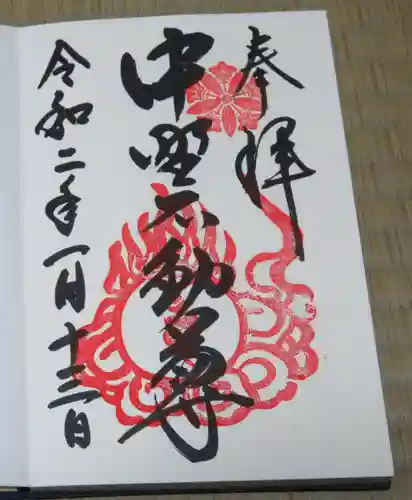 奉拝
中野不動尊
令和二年一月十三日